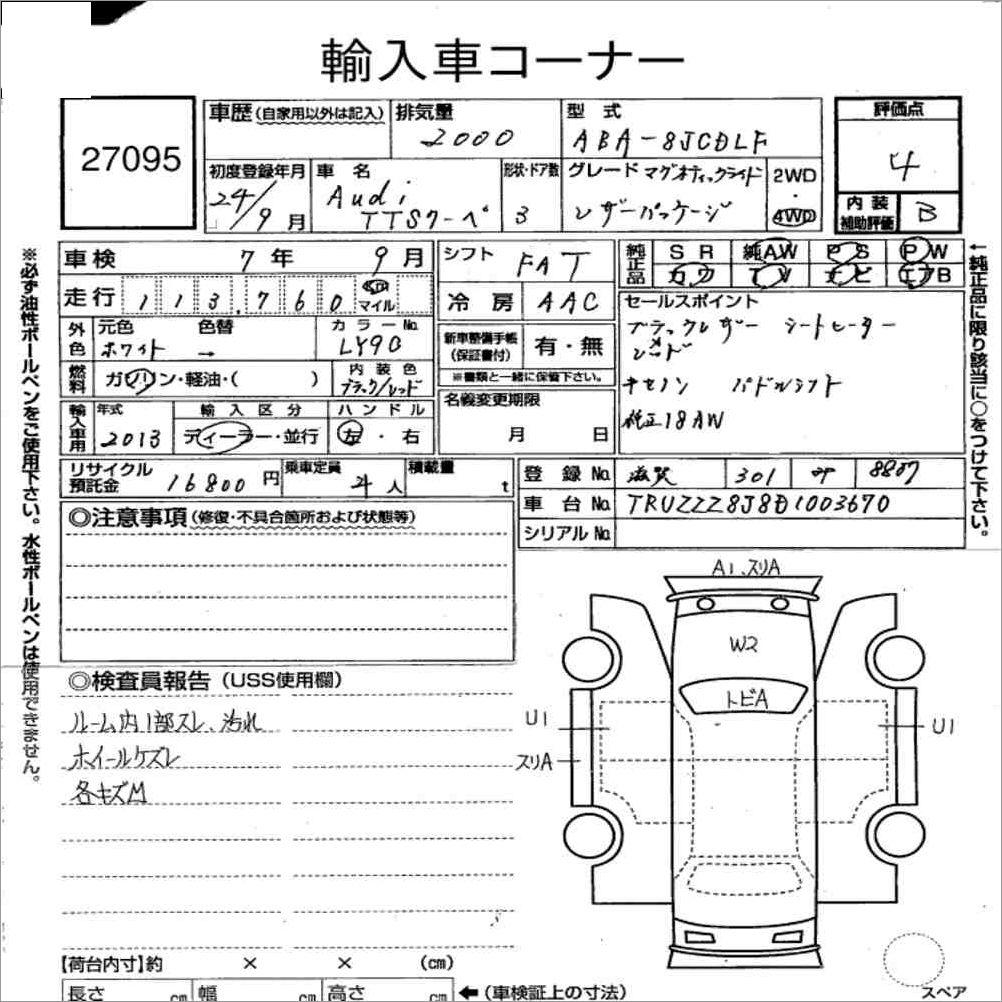 輸入車コーナー
27095
車歴(自家用以外は記入) 排気量 2000 型式 ABA-8JCDLF
評価点 4
初度登録年月 24/9月 車名 Audi TTSクーペ 形状・ドア数 3 グレード マグネティックライド レザーパッケージ 2WD・4WD
内装補助評価 B
車検 7年 9月
シフト FAT
純正品 SR 純AW PS PW
カワ TV ナビ エアB
走行 113,760 km マイル
冷房 AAC
セールスポイント
ブラックレザー シートヒーター
レッド
キセノン パドルシフト
純正18AW
外色 元色 ホワイト 色替 → カラーNo. LY9C
新車整備手帳(保証書付) 有・無
※書類と一緒に保管下さい。
燃料 ガソリン・軽油・( ) 内装色 ブラック/レッド
名義変更期限 月 日
輸入車用 年式 2013 輸入区分 ディーラー・並行 ハンドル 左・右
リサイクル預託金 16800円 乗車定員 4人 積載量 t
登録No. 滋賀 301 8807
車台No. TRUZZZ8J8D1003670
シリアルNo.
◎注意事項(修復・不具合箇所および状態等)
◎検査員報告(USS使用欄)
ルーム内1部スレ、汚れ
ホイールケズレ
各キズM
A1、スリA
W2
トビA
U1
スリA
U1
【荷台内寸】約 × × (cm)
長さ cm 幅 cm 高さ cm ←(車検証上の寸法)
スペア
※必ず油性ボールペンをご使用下さい。水性ボールペンは使用できません。
←純正品に限り該当に○をつけて下さい。